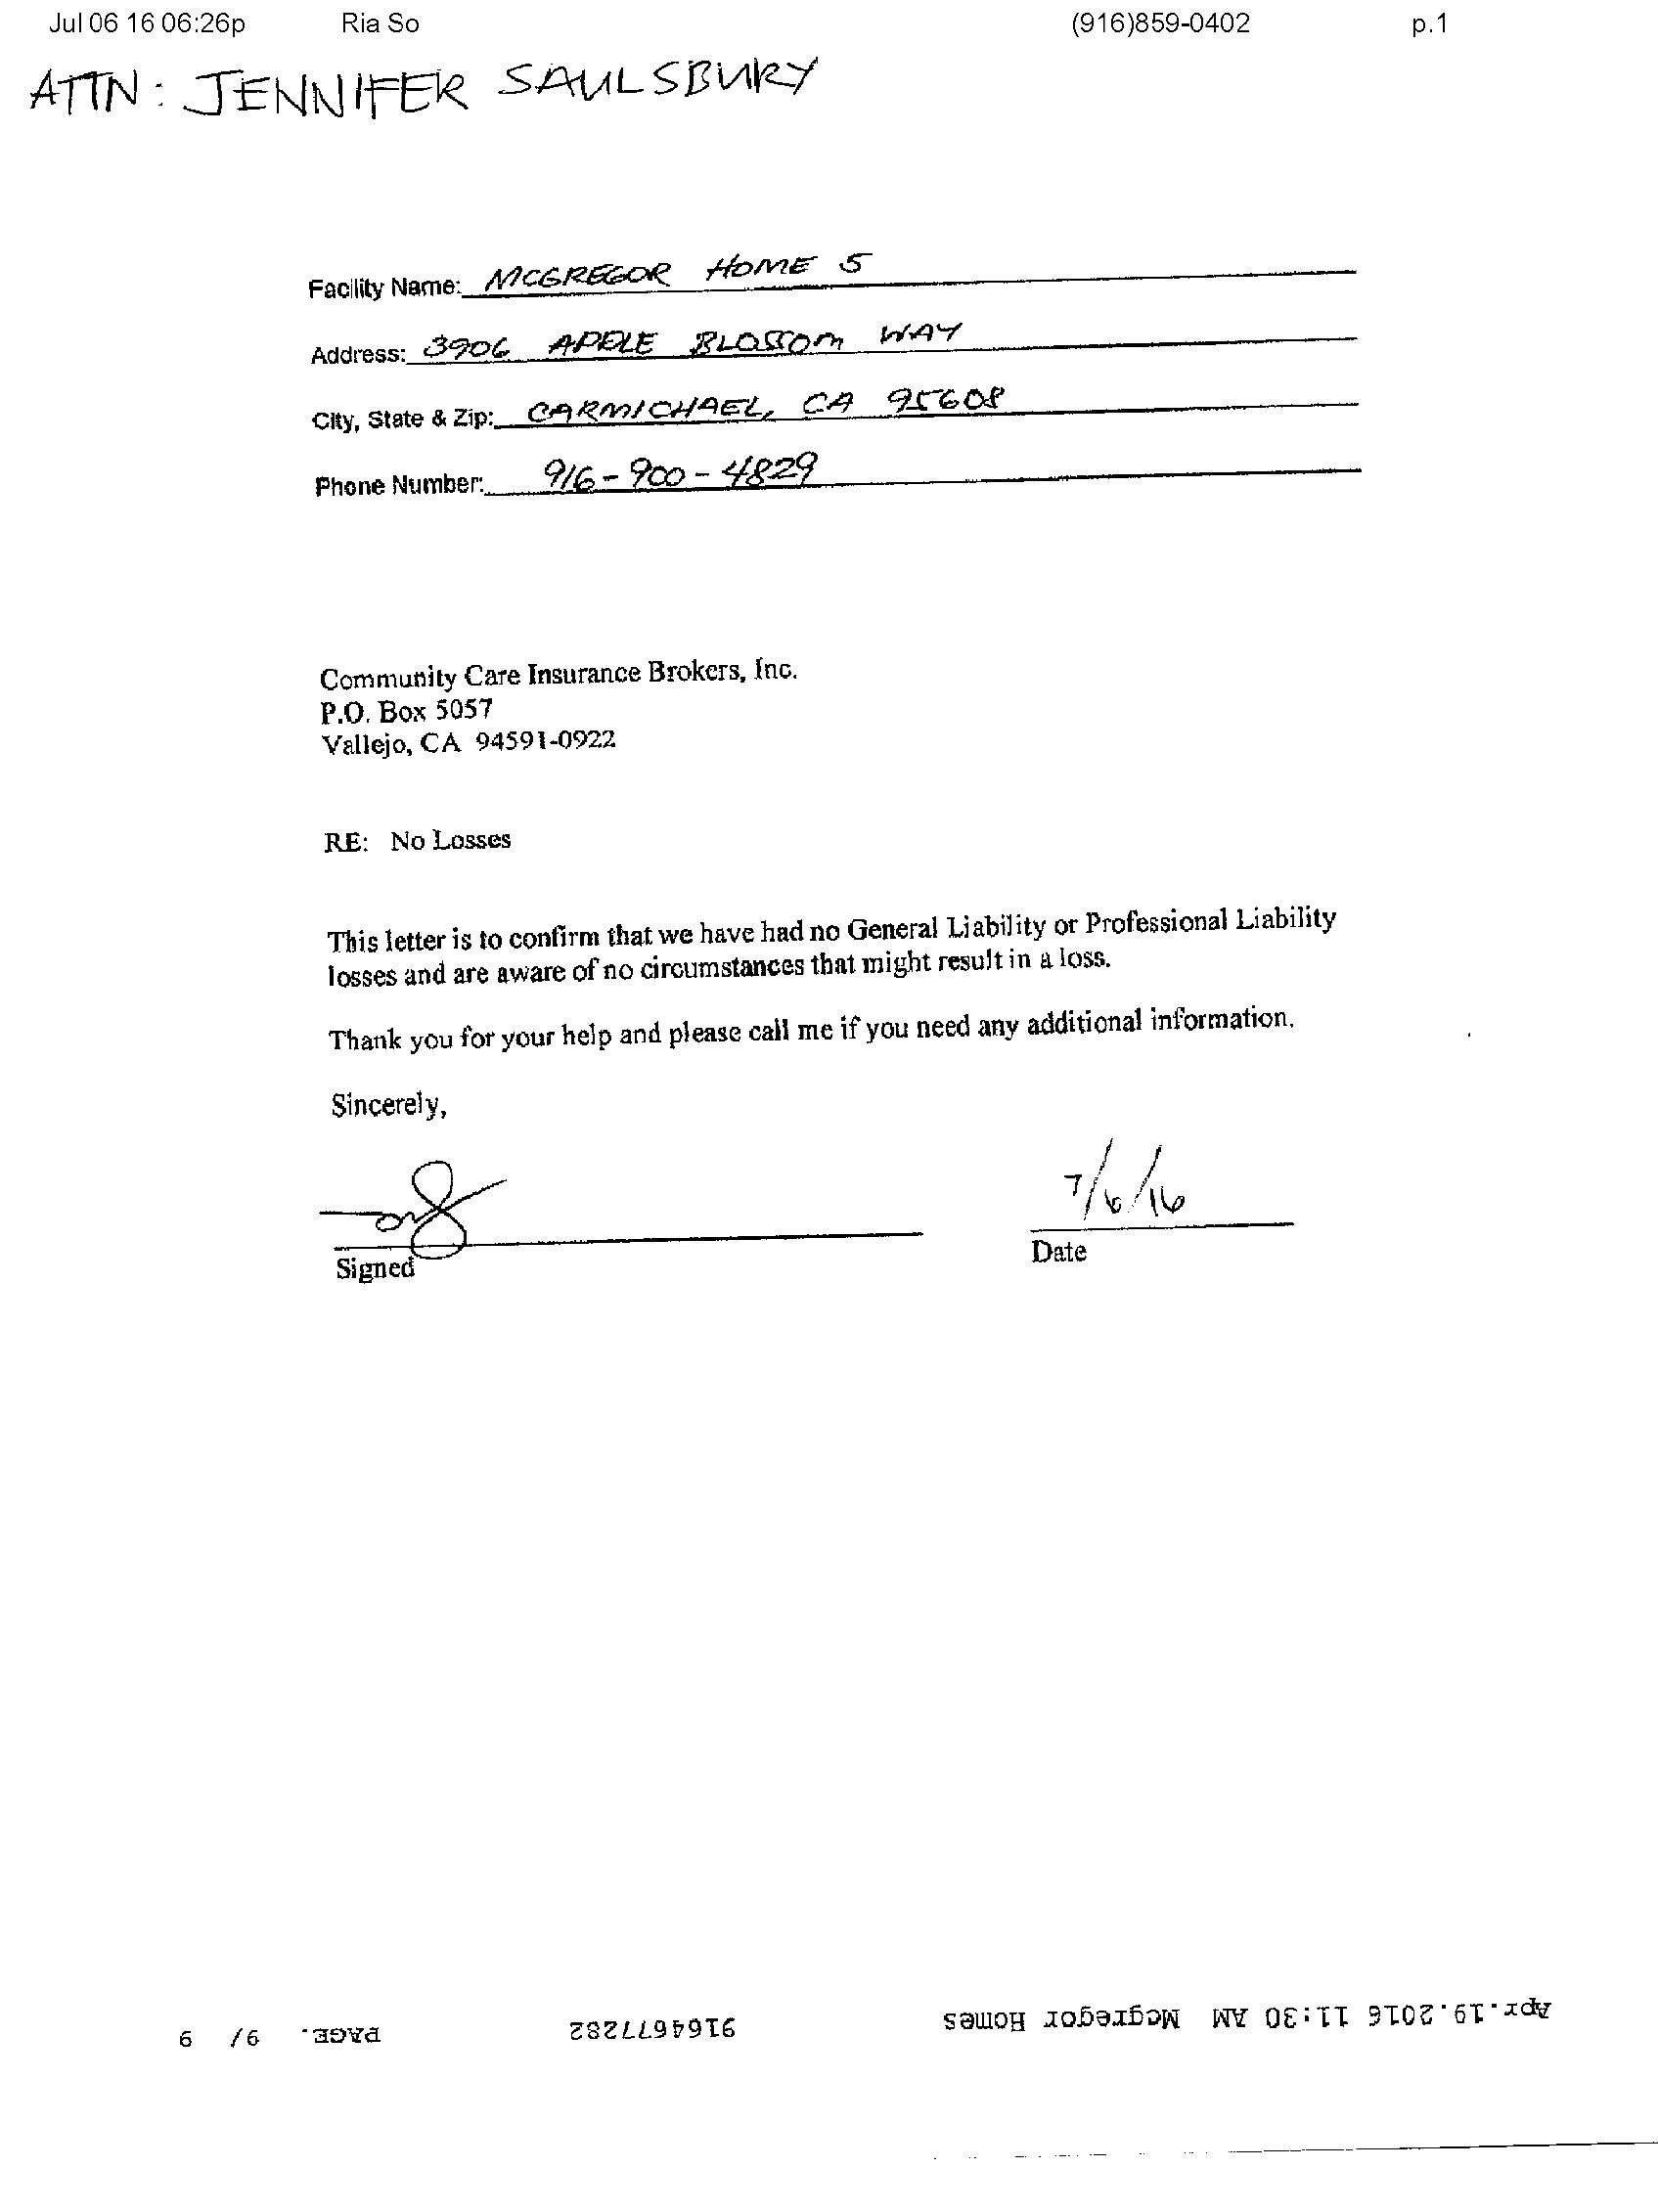 Jul 06 16 06:26p Ria So (916)859-0402 p.1
ATTN: JENNIFER SAULSBURY
Facility Name: MCGREGOR HOME 5
Address: 3906 APPLE BLOSSOM WAY
City, State & Zip: CARMICHAEL, CA 95608
Phone Number: 916-900-4829
Community Care Insurance Brokers, Inc.
P.O. Box 5057
Vallejo, CA 94591-0922
RE: No Losses
This letter is to confirm that we have had no General Liability or Professional Liability
losses and are aware of no circumstances that might result in a loss.
Thank you for your help and please call me if you need any additional information.
Sincerely,
7/6/16
Signed Date
Apr.19.2016 11:30 AM Mcgregor Homes 9164677282 PAGE. 9/ 9